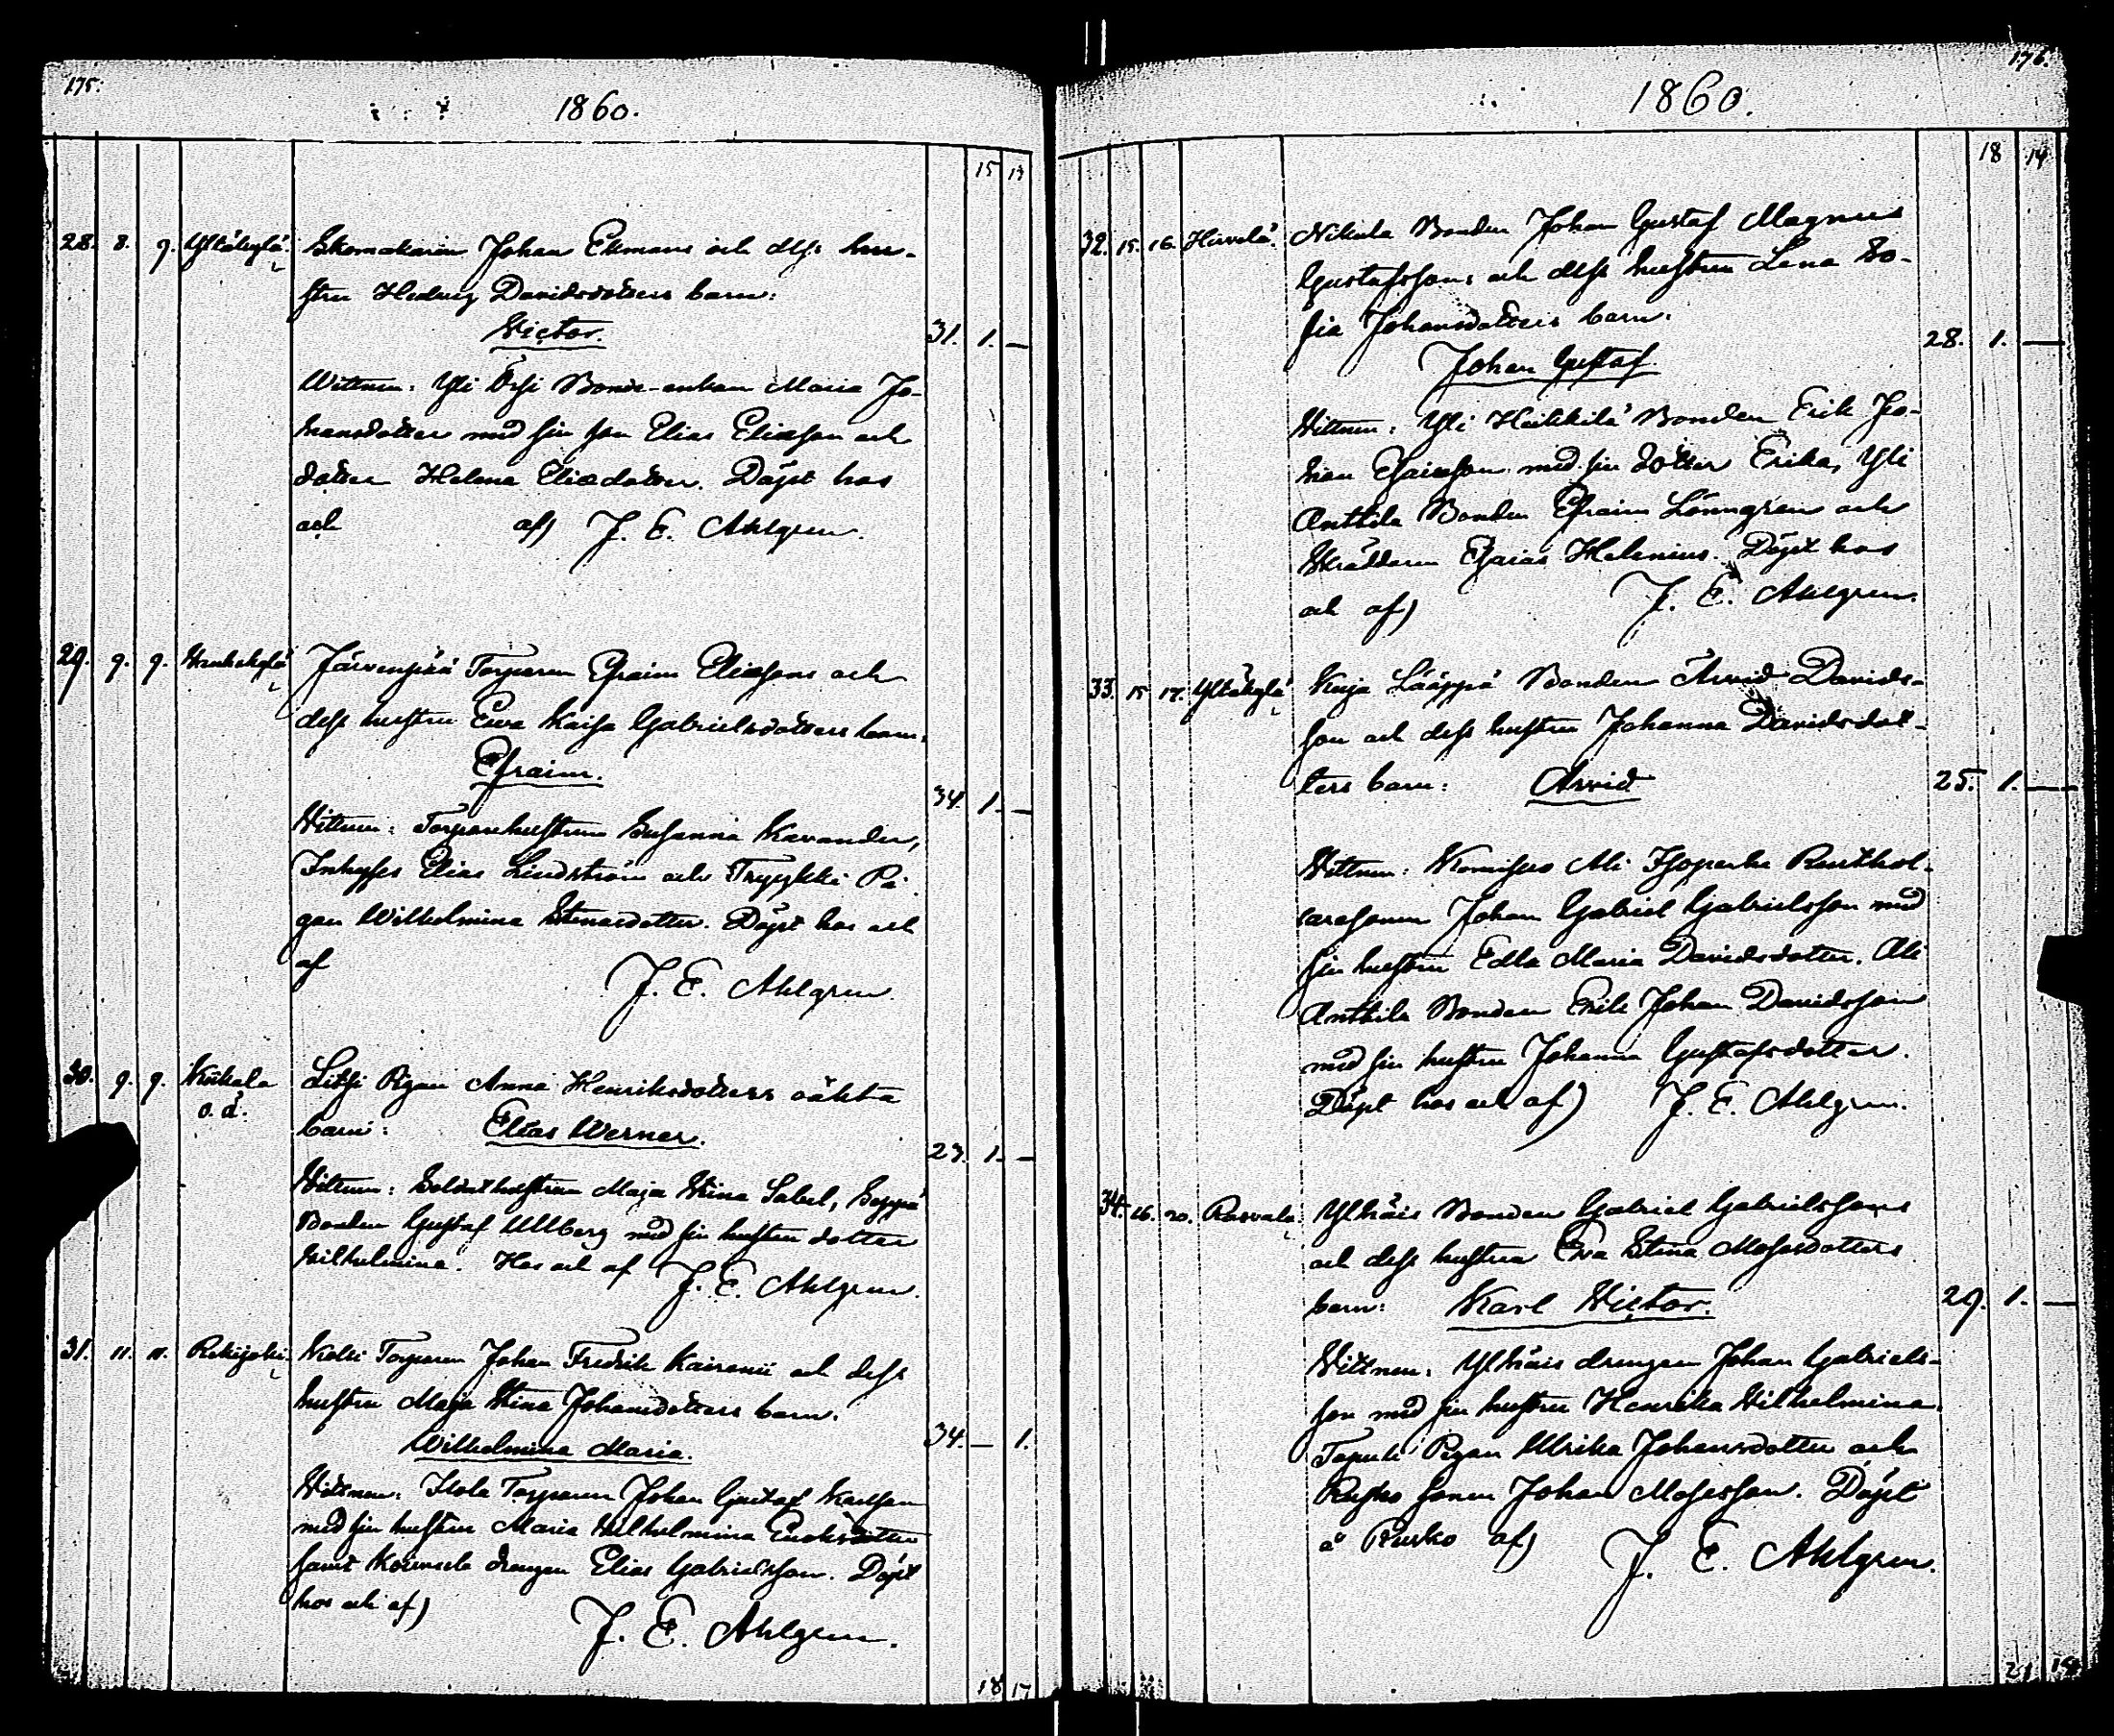 175.
1860.
15 13
28. 8. 9. Yltäkylä. Skomakaren Johan Ekmans och dess hu-
stru Hedvig Davidsdotters barn:
Victor. 31. 1. —
Wittnen: Yli Bonde-enkan Maria Jo-
hansdotter med sin son Elias Eliasson och
dotter Helena Eliedotter. Döpt hos
och af) J. E. Ahlgren.
29. 9. 9. Järvenpää Torparen Efraim Eliassons och
dess hustru Ewa Kaisa Gabrielsdotters barn:
Efraim. 34. 1. —
Vittnen: Torparehustrun Susanna Kavander,
Inhyses Elias Lindström och Tryykki Pi-
gan Wilhelmina Stenarsdotter. Döpt hos och
af J. E. Ahlgren.
30. 9. 9. Kiikala Pigan Anna Henriksdotters oäkta
o. ä.
barn: Elias Werner. 23. 1. —
Vittnen: Soldathustrun Maja Stina Sabel, Seppä
Bonden Gustaf Ullberg med sin hustru dotter
Vilhelmina. Hos och af J. E. Ahlgren.
31. 11. 11. Rekijoki. Torparen Johan Fredrik och dess
hustru Maja Stina Johansdotters barn.
Wilhelmina Maria. 34. — 1.
Vittnen: Torparen Johan Gustaf Karlsson
med sin hustru Maria Vilhelmina
samt drengen Elias Gabrielsson. Döpt
hos och af) J. E. Ahlgren.
18 17
176.
1860.
18 14
32. 15. 16. Hirvelä. Nikula Bonden Johan Gustaf Magnus
Gustafssons och dess hustrun Lena So-
fia Johansdotters barn.
Johan Gustaf 28. 1. —
Vittnen: Yli Heikkilä Bonden Erik Jo-
han Esaiasson med sin dotter Erika, Yli
Anttila Bonden Efraim Lönngren och
Skräddaren Esaias Helenius. Döpt hos
och af) J. E. Ahlgren.
33. 15 17. Yltäkylä Bonden Arvid Davids-
son och dess hustrun Johanna Davidsdot-
ters barn: Arvid 25. 1. —
Vittnen: Ali Isoperhe Rusthol-
laresonen Johan Gabriel Gabrielsson med
sin hustru Edla Maria Davidsdotter. Ali
Anttila Bonden Erik Johan Davidsson
med sin hustru Johanna Gustafsdotter.
Döpt hos och af) J. E. Ahlgren.
34. 16. 20. Rasvala. Ylhäis Bonden Gabriel Gabrielssons
och dess hustrun Eva Stina Mosesdotters
barn: Karl Victor. 29. 1. —
Vittnen: Ylhäis drengen Johan Gabriels-
son med sin hustru Henrika Vilhelmina.
Pigan Ulrika Johansdotter och
Rusko sonen Johan Mosesson. Döpt
å Rusko af) J. E. Ahlgren.
21